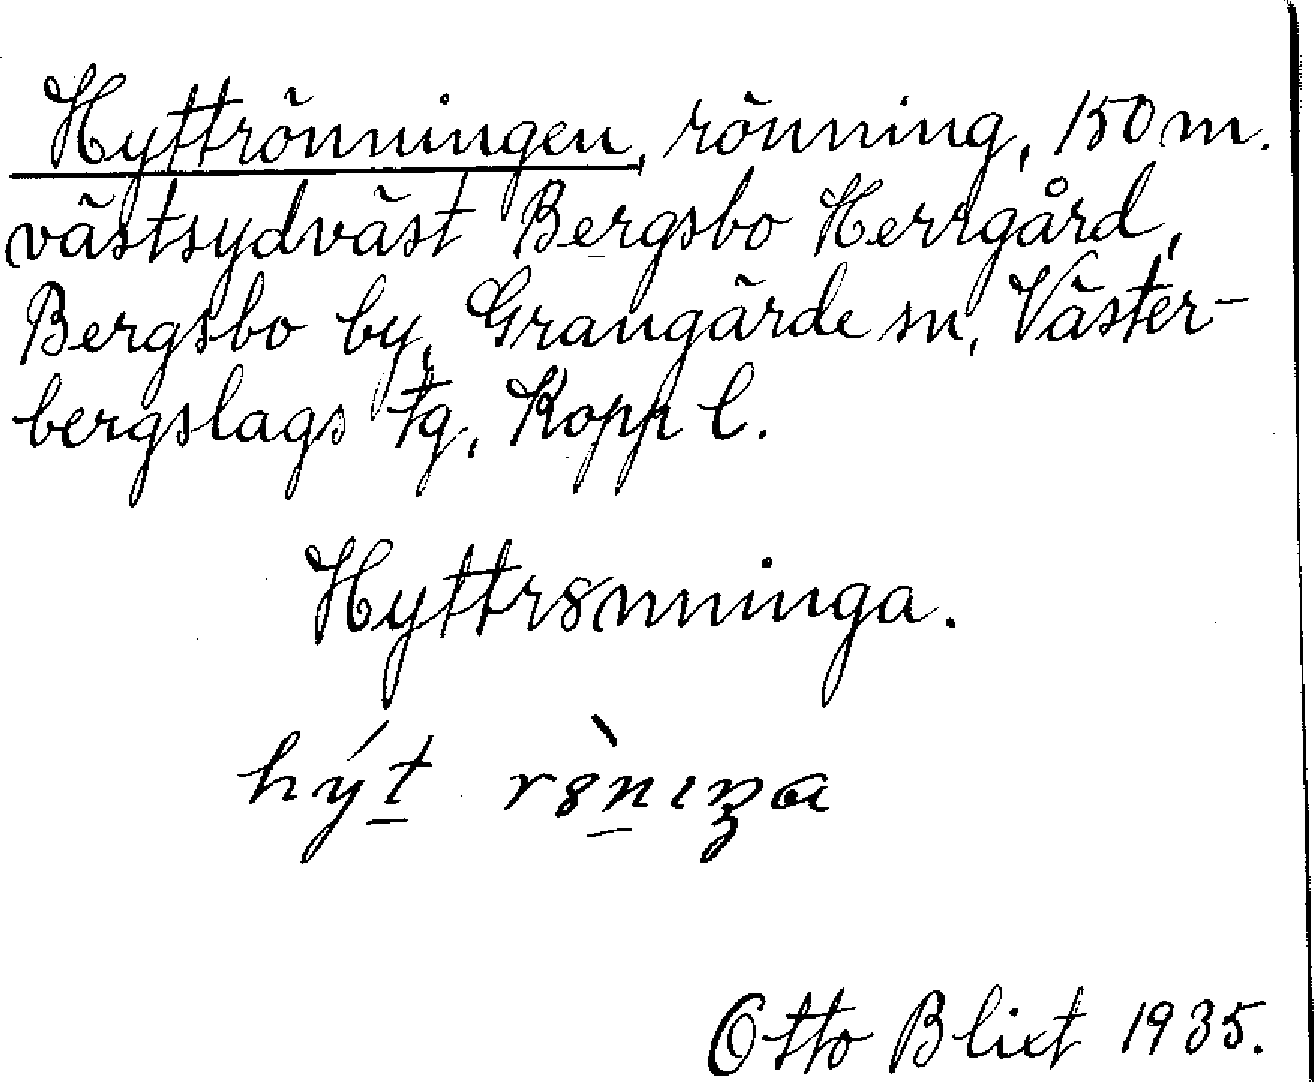 Hyttrönningen, rönning, 150 m.
västsydväst Bergsbo Herrgård,
Bergsbo by, Grangärde sn, Väster-
bergslags fg, Kopp l.
Hyttr8nninga.
hýt r8̀nıŋa
Otto Blixt 1935.